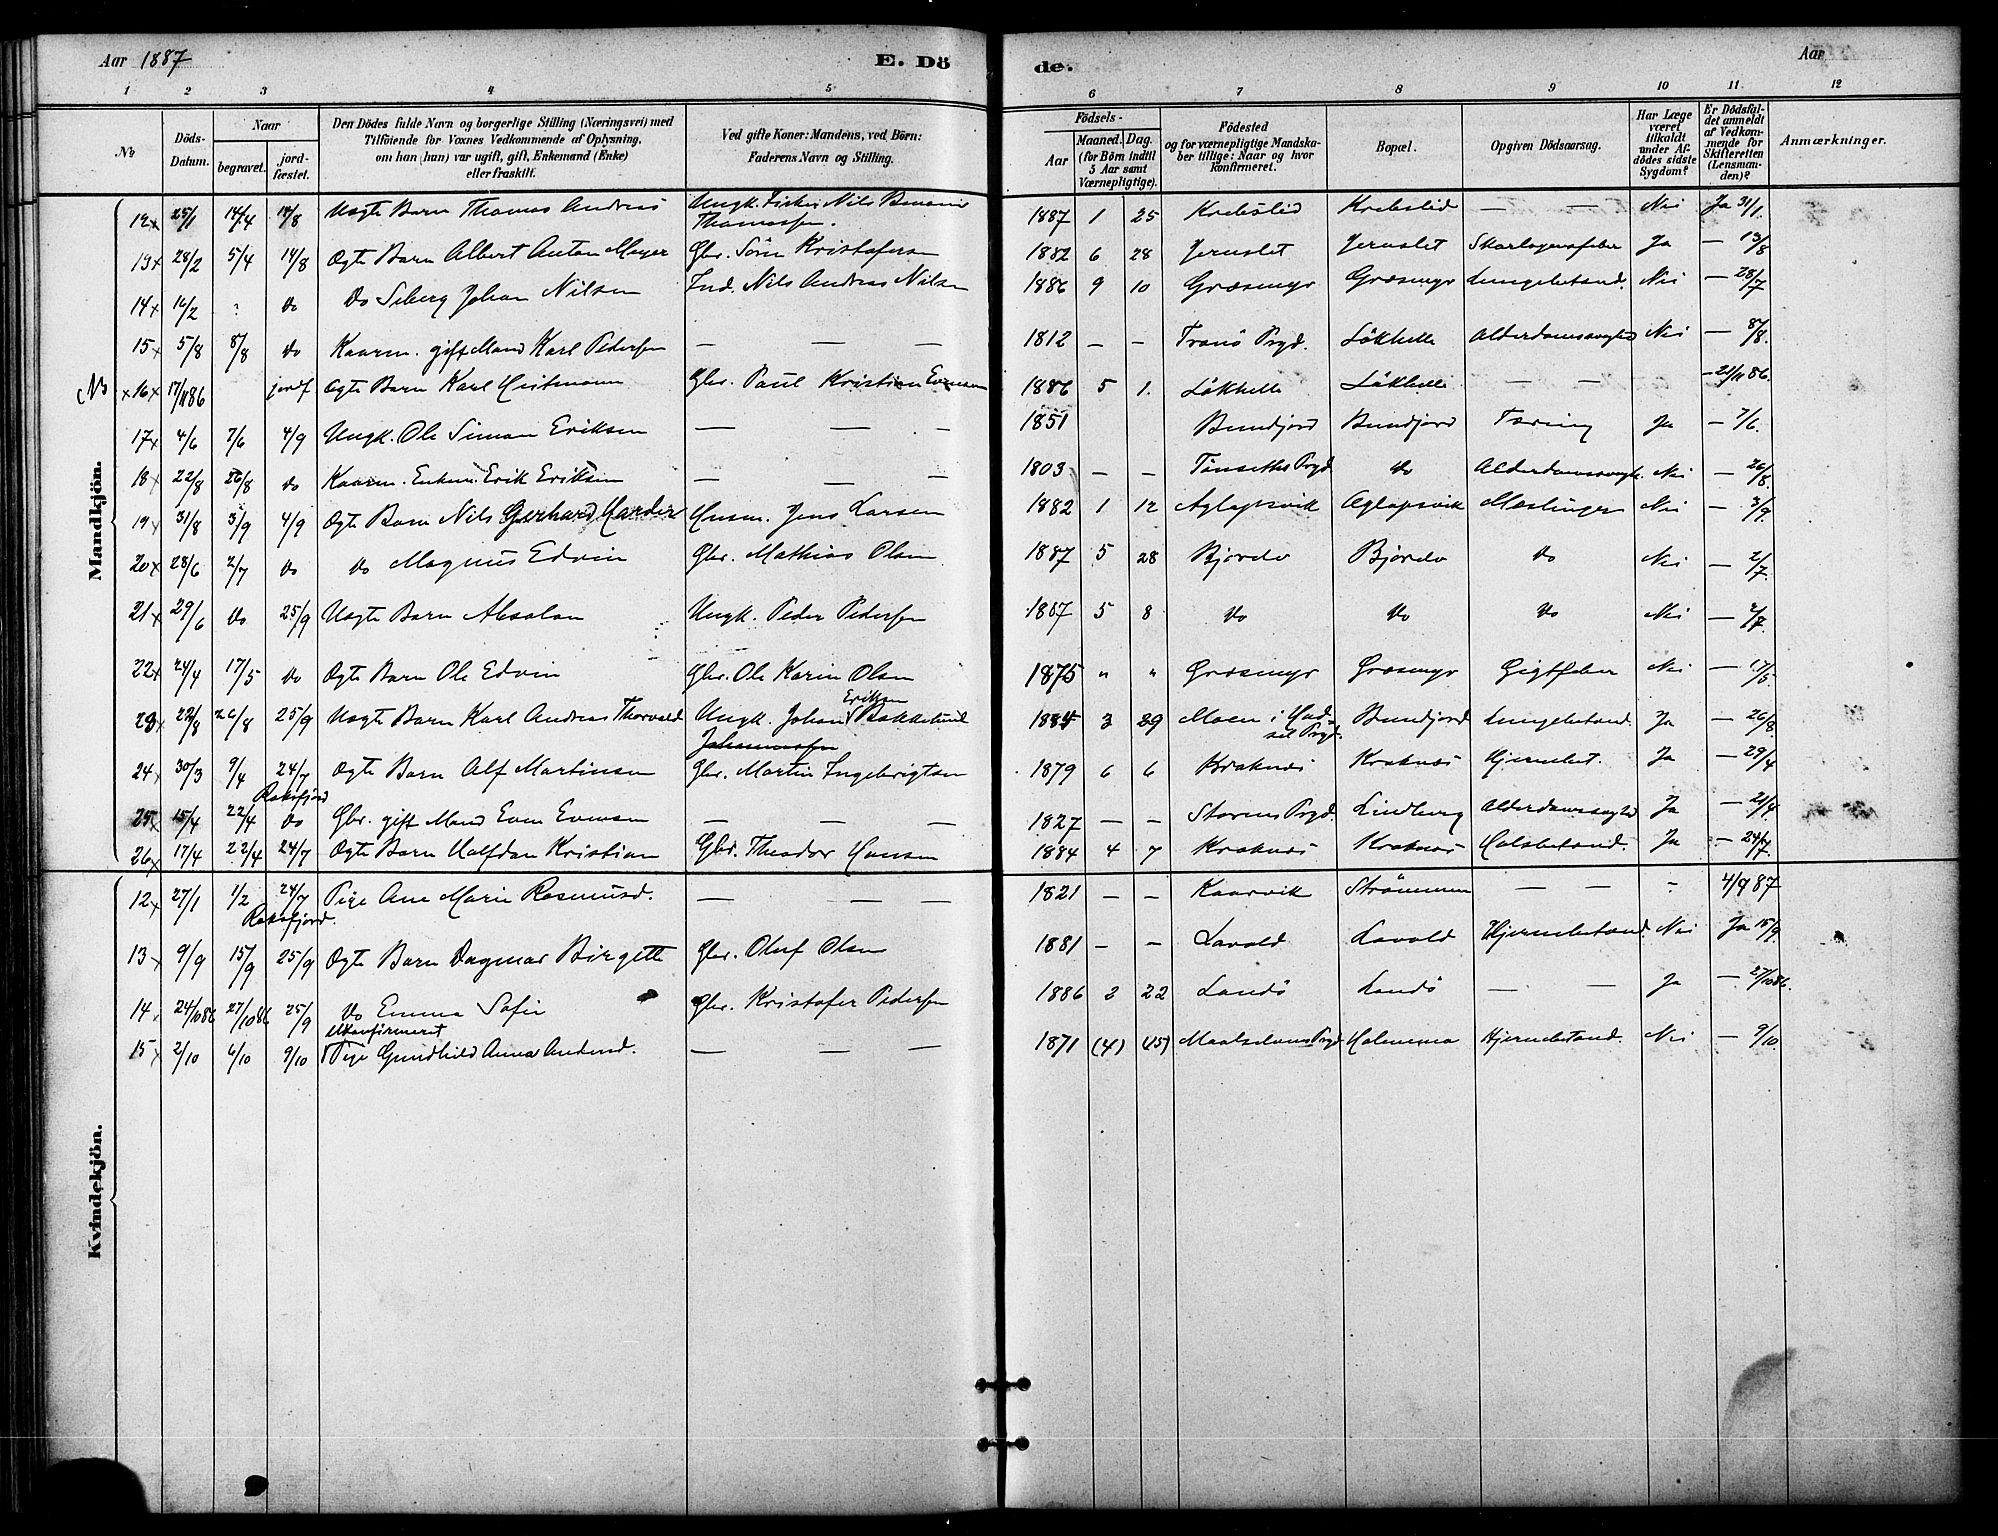 Aar 1887 E. Dö de. Aar
1 2 3 4 5 6 7 8 9 10 11 12
No
Döds-Datum.
Naar
begravet.
jord-fæstet.
Den Dödes fulde Navn og borgerlige Stilling (Næringsvei) med
Tilföiende for Voxnes Vedkommende af Oplysning,
om han (hun) var ugift, gift, Enkemand (Enke)
eller fraskilt.
Ved gifte Koner: Mandens, ved Börn:
Faderens Navn og Stilling.
Födsels-
Aar
Maaned. Dag.
(for Börn indtil
5 Aar samt
Værnepligtige).
Födested
og for værnepligtige Mandska-
ber tillige: Naar og hvor
konfirmeret.
Bopæl.
Opgiven Dödsaarsag.
Har Læge
været
tilkaldt
under Af-
dödes sidste
Sygdom?
Er Dödsfal-
det anmeldt
af Vedkom-
mende for
Skifteretten
(Lensman-
den)?
Anmærkninger.
Mandkjön.
12x 25/1 14/4 14/8 Uægte Barn Thomas Andreas Ungk. Fisker Nils Thomassen. 1887 1 25 Krebslid Krebslid — — Nei Ja 31/1.
13x 28/2 5/4 14/8 Ægte Barn Albert Anton Meyer Gbr. Sörin Kristofersen 1882 6 28 Jernslet Jernslet Skarlagensfeber Ja — 13/8
14x 16/2 " do Do Seberg Johan Nilsen Ind. Nils Andreas Nilsen 1886 9 10 Græsmyr Græsmyr Lungebetænd. Nei — 28/7
15x 5/8 8/8 do Kaarm. gift Mand Karl Pedersen — — — 1812 — — Tranö Prgd. Lökhelle Alderdomssvaghed Nei — 8/8.
NB x16x 17/11 86 jordf Ægte Barn Karl Hritmann Gbr. Paul Kristian Evensen 1886 5 1. Lökhelle Lökhelle — — — 21/11 86.
17x 4/6 7/6 4/9 Ungk. Ole Simon Eriksen — — — 1851 Bundjord Bundjord Tæring Ja — 7/6.
18x 22/8 26/8 do Kaarm. Enkem. Erik Eriksen — — — 1803 — — Tönseths Prgd do Alderdomssvagh. Nei — 26/8.
19x 31/8 3/9 4/9 Ægte Barn Nils Gerhard Harder Husm. Jens Larsen 1882 1 12 Aglapsvik Aglapsvik Mæslinger Nei — 3/9.
20x 28/6 2/7 do do Magnus Edvin Gbr. Mathias Olsen 1887 5 28 Bjorelv Bjorelv do Nei — 2/7.
21x 29/6 do 25/9 Uægte Barn Absalon Ungk. Peder Pedersen 1887 5 8 do do do Nei — 2/7.
22x 24/4 17/5 do Ægte Barn Ole Edvin Gbr. Ole Karin Olsen 1875 " " Græsmyr Græsmyr Gigtfeber Nei — 17/5.
23x 22/8 26/8 25/9 Uægte Barn Karl Andreas Thorvald Ungk. Johan Eriksen Bakkelund 1884 3 29 Moen i Hadsel Prgd. Bundjord Lungebetænd. Ja — 26/8.
24x 30/3 9/4 24/7 Rossfjord Ægte Barn Alf Martinsen Johannessen Gbr. Martin Ingebrigtsen 1879 6 6 Kraknæs Kraknæs Hjernebet. Ja — 29/4
25x 15/4 22/4 do Gbr. gift Mand Even Evensen — — — 1827 — — Störens Prgd. Lindberg Alderdomssvaghed Ja — 21/4.
26x 17/4 22/4 24/7 Ægte Barn Halfdan Kristian Gbr. Theodor Hansen 1884 4 7 Kraknæs Kraknæs Halsbetænd. Ja — 24/7.
Kvindekjön.
12x 27/1 1/2 24/7 Rossfjord. Pige Ane Marie Rasmusd. — — — 1821 — — Kaarvik Strömmen — — - 4/9 87
13x 9/9 15/9 25/9 Ægte Barn Dagmar Birgette Gbr. Oluf Olsen 1881 — — Lavold Lavold Hjernebetænd. Nei Ja 15/9
14x 24/10 86 27/10 86 25/9 Do Emma Sofie Gbr. Kristofer Pedersen 1886 2 22 Landö Landö — — Ja — 27/10 86.
15x 2/10 6/10 9/10 Ukonfirmeret Pige Gundhild Anna Andersd. — — — 1871 (4) (15) Maalselvens Prgd Holmemo Hjernebetænd. Nei — 9/10.